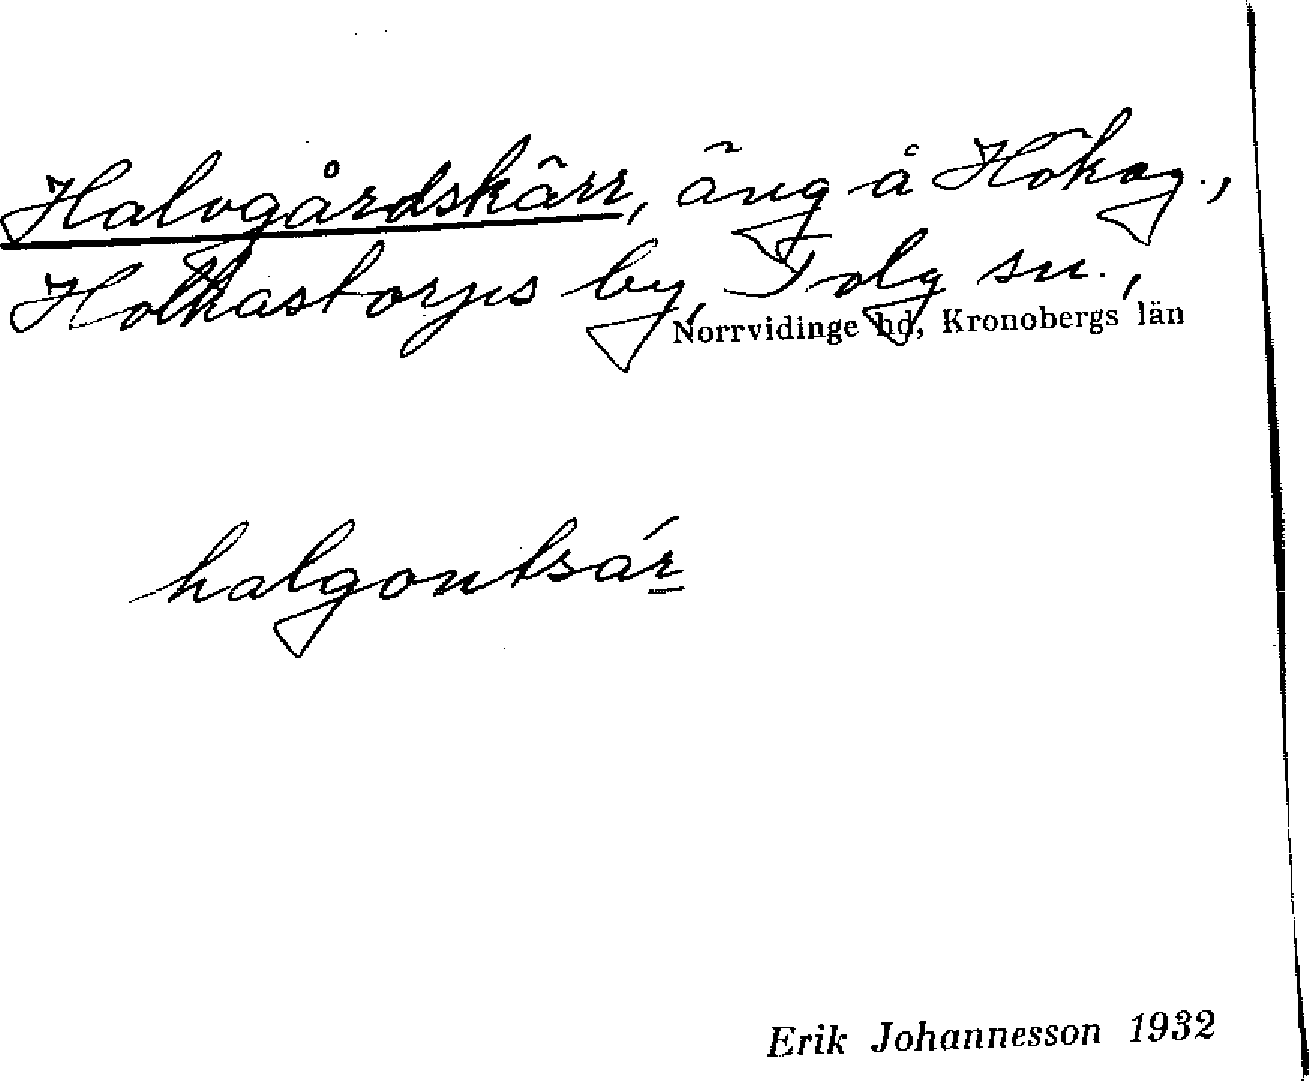 Halvgårdskärr, äng å Hökag.,
Holkastorps by, Tolg sn.,
Norrvidinge hd, Kronobergs län
halgontsár
Erik Johannesson 1932